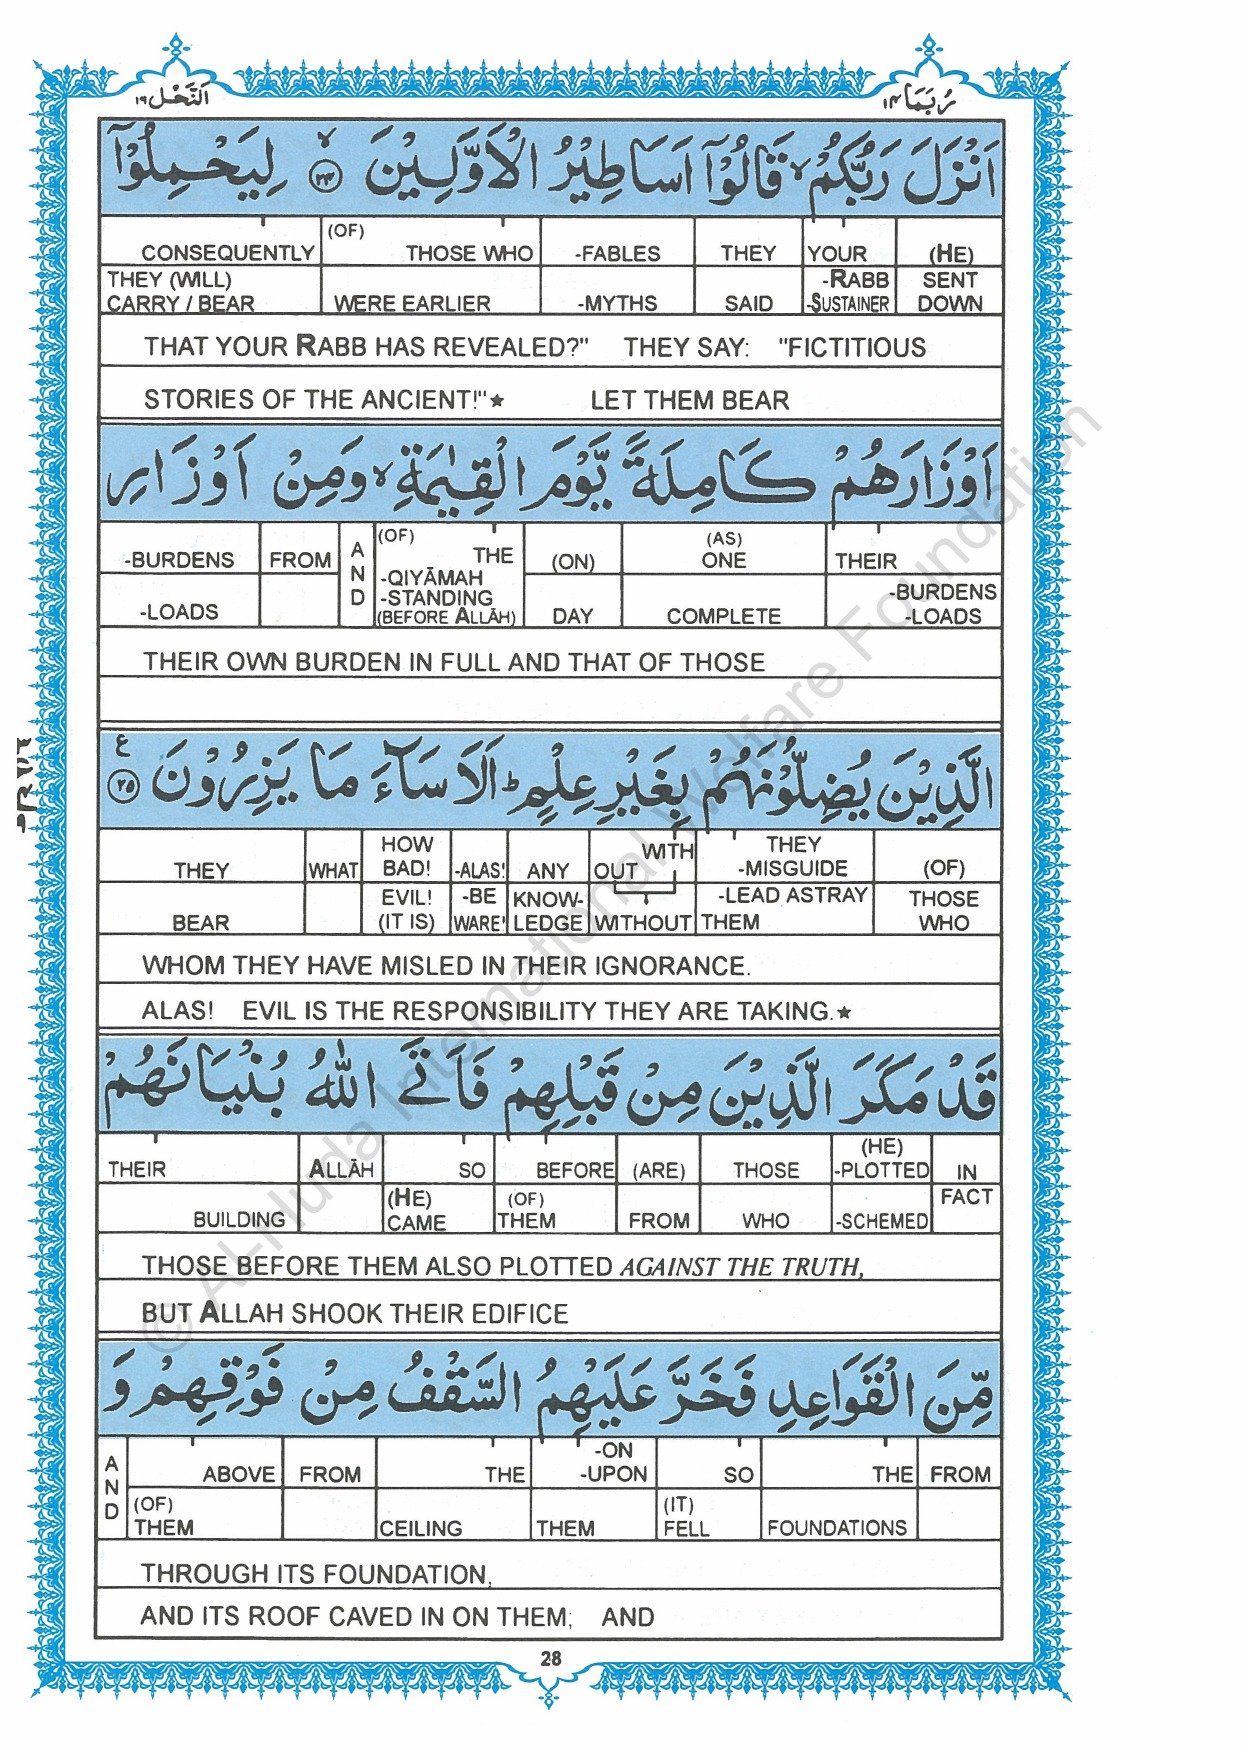 اَلنَّحْل ١٦
رُبَمَا ١٤
اَنْزَلَ رَبُّكُمْ ۙ قَالُوْۤا اَسَاطِيْرُ الْاَوَّلِيْنَ ۙ ﴿٢٤﴾ لِيَحْمِلُوْۤا
CONSEQUENTLY (OF) THOSE WHO -FABLES THEY YOUR (HE)
THEY (WILL) CARRY / BEAR WERE EARLIER -MYTHS SAID -RABB -SUSTAINER SENT DOWN
THAT YOUR RABB HAS REVEALED?" THEY SAY: "FICTITIOUS
STORIES OF THE ANCIENT!"★ LET THEM BEAR
اَوْزَارَهُمْ كَامِلَةً يَّوْمَ الْقِيٰمَةِ ۙ وَمِنْ اَوْزَارِ
-BURDENS FROM AND (OF) THE -QIYĀMAH -STANDING (BEFORE ALLĀH) (ON) (AS) ONE THEIR
-LOADS DAY COMPLETE -BURDENS -LOADS
THEIR OWN BURDEN IN FULL AND THAT OF THOSE
الَّذِيْنَ يُضِلُّوْنَهُمْ بِغَيْرِ عِلْمٍ ؕ اَلَا سَآءَ مَا يَزِرُوْنَ ﴿٢٥﴾ ع
THEY WHAT HOW BAD! -ALAS! ANY OUT WITH THEY -MISGUIDE (OF)
BEAR EVIL! (IT IS) -BE WARE! KNOW-LEDGE WITHOUT -LEAD ASTRAY THEM THOSE WHO
WHOM THEY HAVE MISLED IN THEIR IGNORANCE.
ALAS! EVIL IS THE RESPONSIBILITY THEY ARE TAKING.★
قَدْ مَكَرَ الَّذِيْنَ مِنْ قَبْلِهِمْ فَاَتَى اللّٰهُ بُنْيَانَهُمْ
THEIR ALLĀH SO BEFORE (ARE) THOSE (HE) -PLOTTED IN FACT
BUILDING (HE) CAME (OF) THEM FROM WHO -SCHEMED
THOSE BEFORE THEM ALSO PLOTTED AGAINST THE TRUTH,
BUT ALLAH SHOOK THEIR EDIFICE
مِّنَ الْقَوَاعِدِ فَخَرَّ عَلَيْهِمُ السَّقْفُ مِنْ فَوْقِهِمْ وَ
AND ABOVE FROM THE -ON -UPON SO THE FROM
(OF) THEM CEILING THEM (IT) FELL FOUNDATIONS
THROUGH ITS FOUNDATION,
AND ITS ROOF CAVED IN ON THEM; AND
28
© Al-Huda International Welfare Foundation